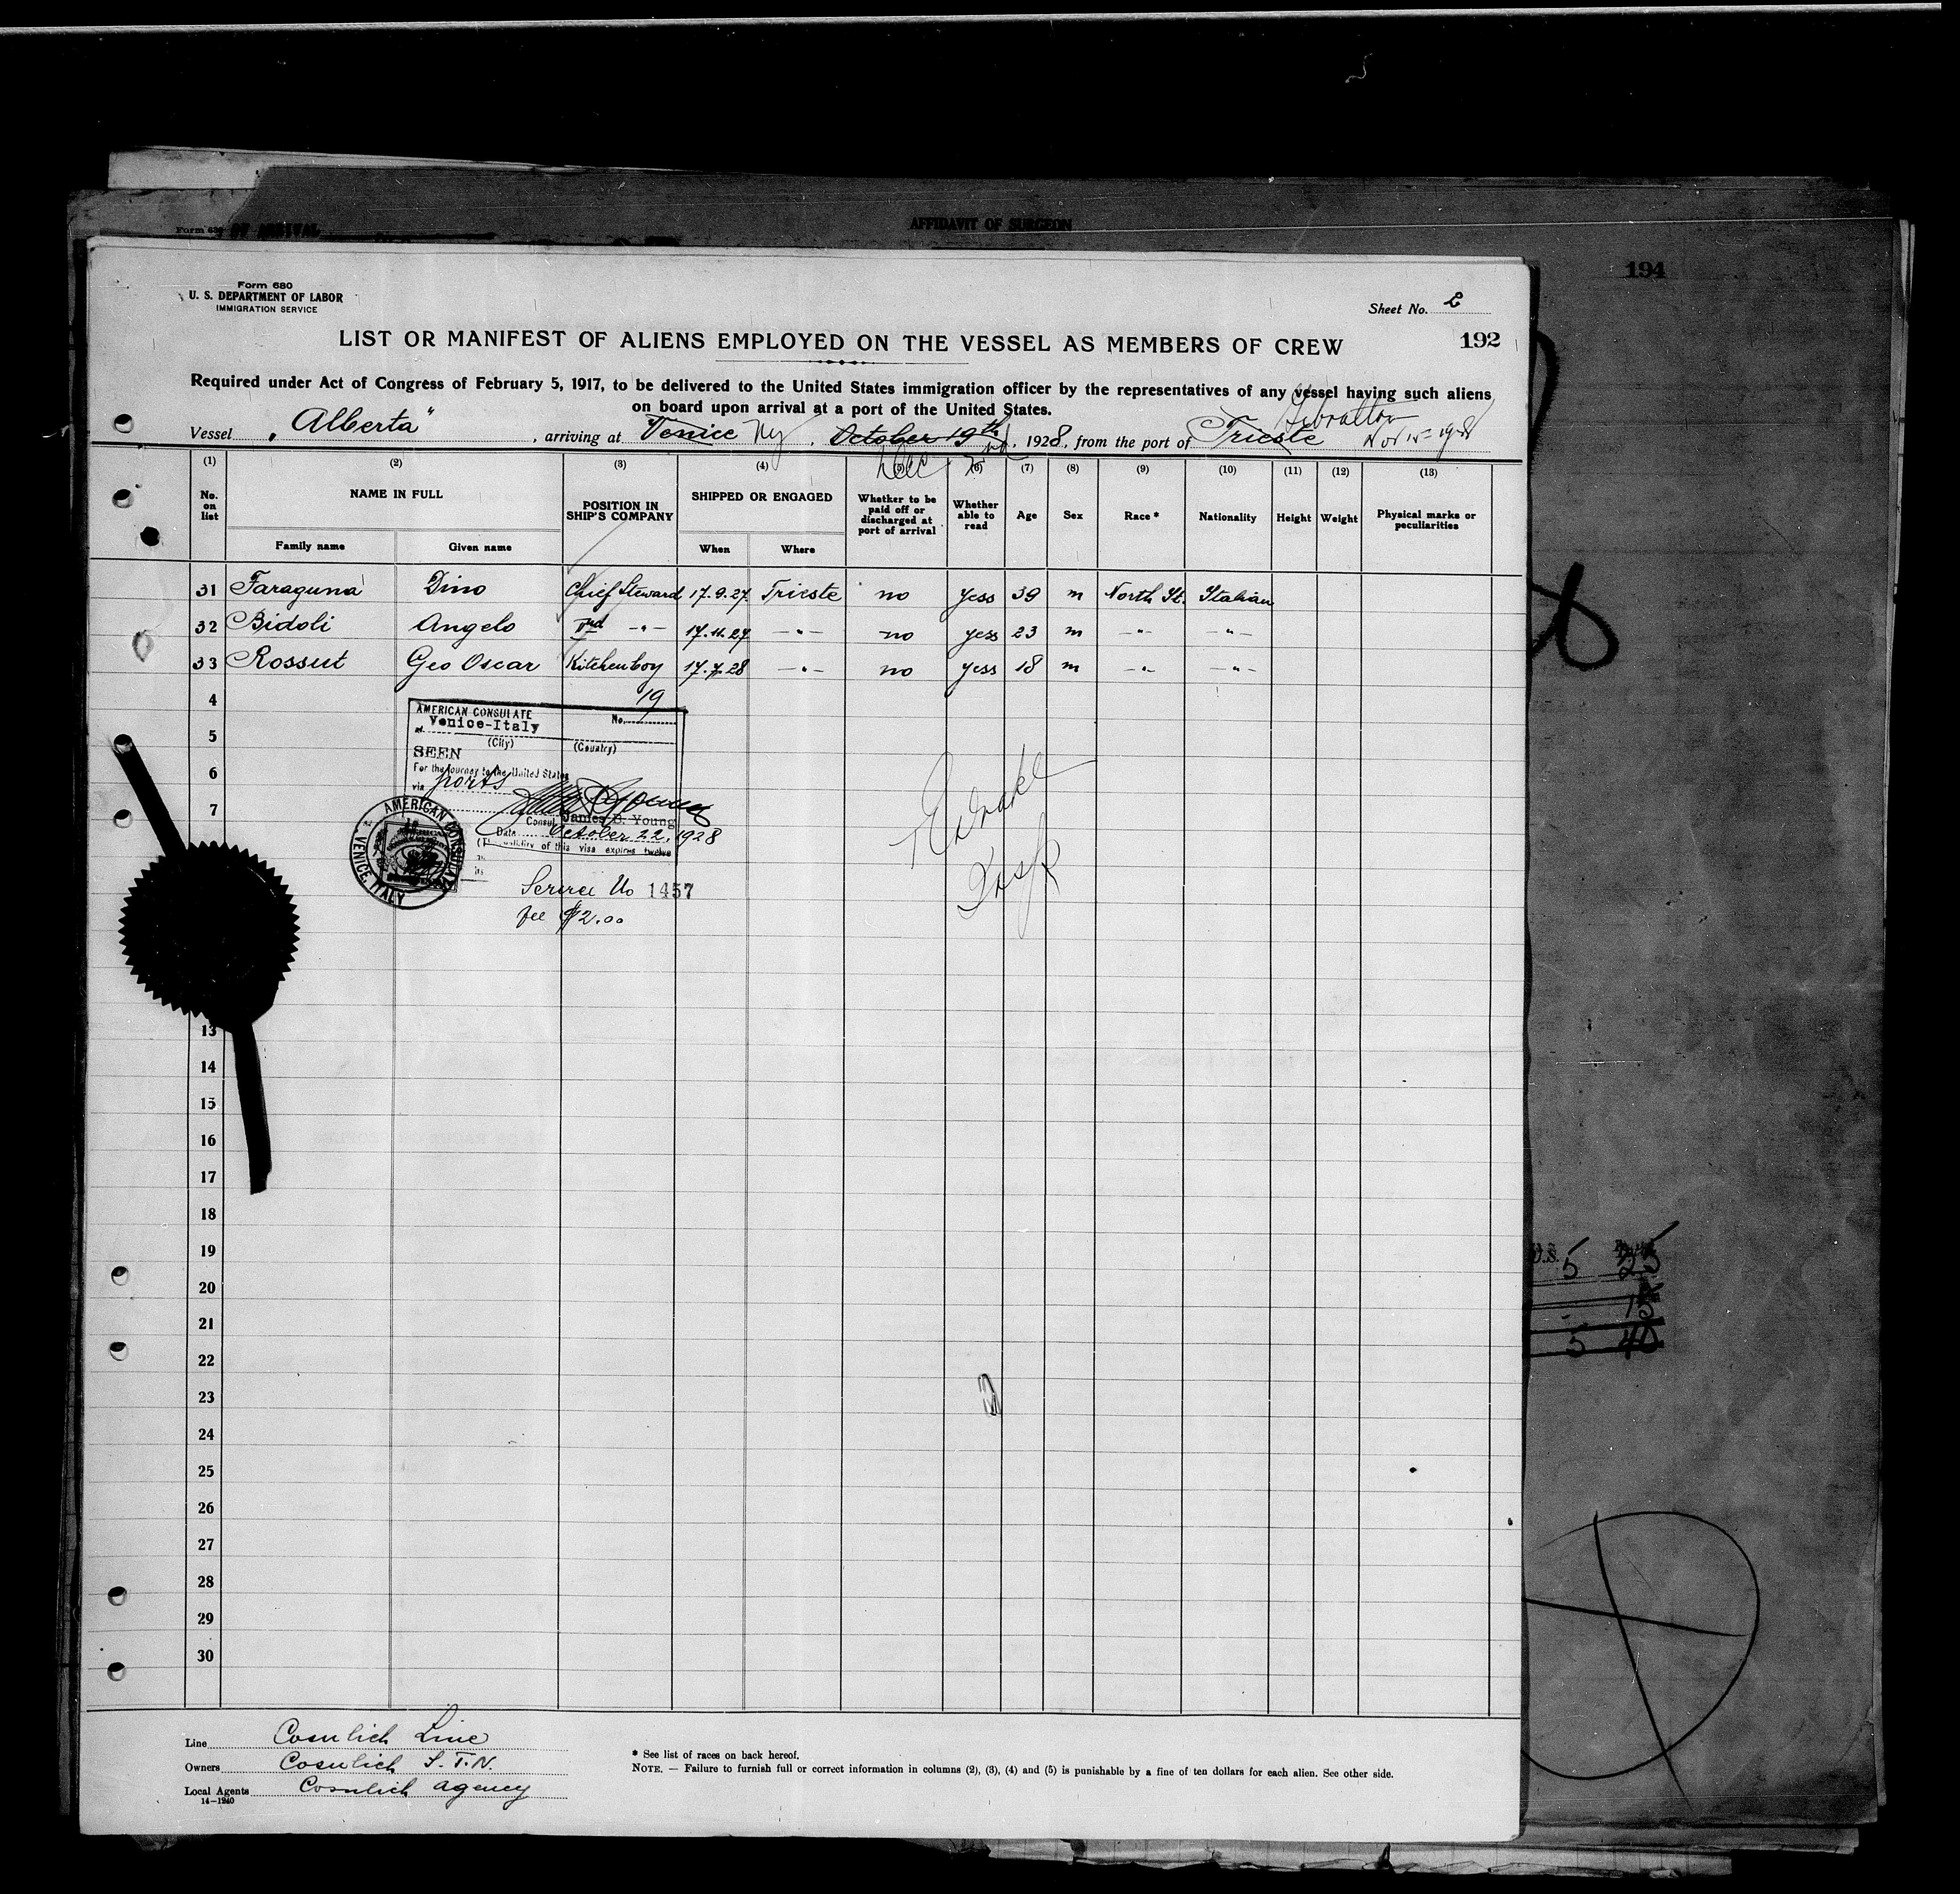 Form 680 OF ARRIVAL
AFFIDAVIT OF SURGEON
194
Form 680
U. S. DEPARTMENT OF LABOR
IMMIGRATION SERVICE
Sheet No. 2
LIST OR MANIFEST OF ALIENS EMPLOYED ON THE VESSEL AS MEMBERS OF CREW
192
Required under Act of Congress of February 5, 1917, to be delivered to the United States immigration officer by the representatives of any vessel having such aliens
on board upon arrival at a port of the United States.
Gibraltar
Vessel „Alberta“, arriving at Venice Ny, October 19th, 1928, from the port of Trieste Nov 15-1928
Dec 2nd
(1) (2) (3) (4) (5) (6) (7) (8) (9) (10) (11) (12) (13)
No. on list NAME IN FULL POSITION IN SHIP'S COMPANY SHIPPED OR ENGAGED Whether to be paid off or discharged at port of arrival Whether able to read Age Sex Race * Nationality Height Weight Physical marks or peculiarities
Family name Given name When Where
31 Faraguna Dino Chief Steward 17.9.27 Trieste no yess 39 m North It. Italian
32 Bidoli Angelo IInd -"- 17.11.27 -"- no yess 23 m -"- -"-
33 Rossut Geo Oscar Kitchenboy 17.7.28 -"- no yess 18 m -"- -"-
4
19
AMERICAN CONSULATE No.
at Venice-Italy
5
(City) (Country)
SEEN
6
For the journey to the United States
via ports
7
Consul James B. Young
Date October 22, 1928
validity of this visa expires twelve
AMERICAN CONSULATE VENICE, ITALY
Service No 1457
fee $2.00
13
14
15
16
17
18
19
20
21
22
23
24
25
26
27
28
29
30
U.S. 5 25
15
5 40
Line Cosulich Line
Owners Cosulich S.T.N.
Local Agents Cosulich agency
14-1240
* See list of races on back hereof.
NOTE. — Failure to furnish full or correct information in columns (2), (3), (4) and (5) is punishable by a fine of ten dollars for each alien. See other side.